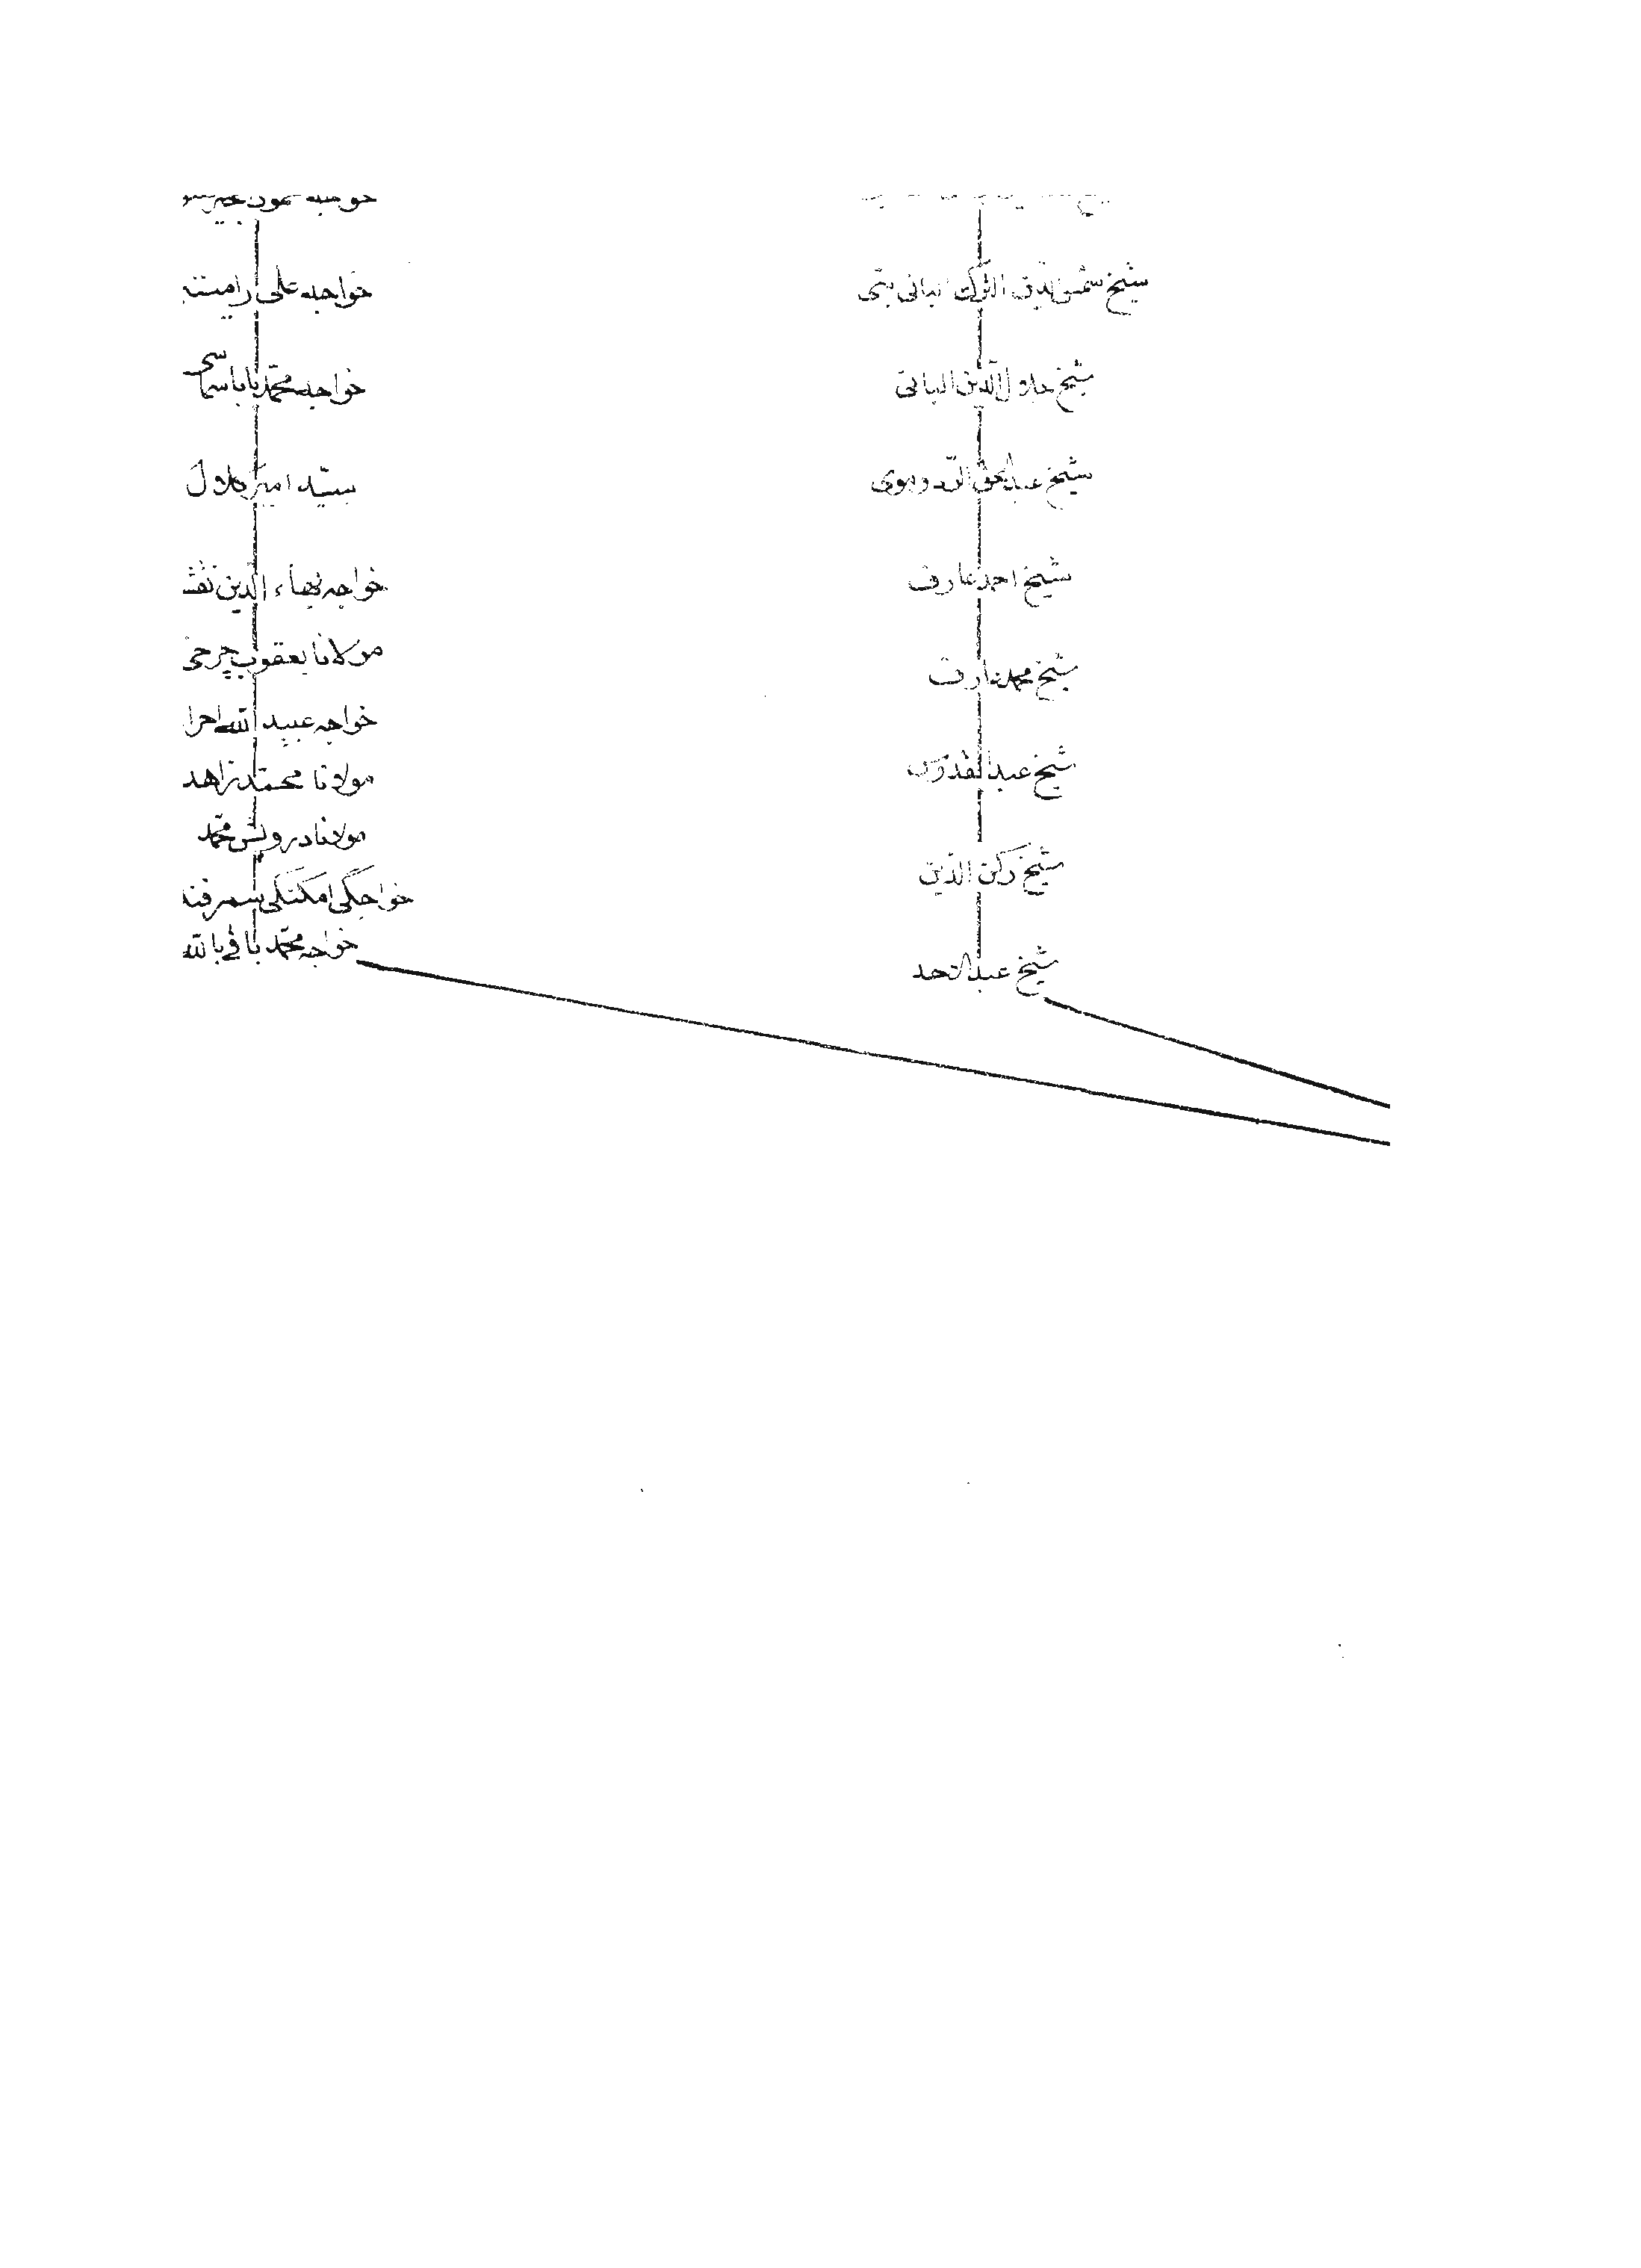 شيخ شمس الدين الترك الپانی پتی
شيخ جلال الدين الپانی
شيخ عبدالحق الردولوی
شيخ احمد عارف
شيخ محمد عارف
شيخ عبدالقدوس
شيخ ركن الدّين
شيخ عبدالاحد
خواجه علی رامیتنی
خواجه محمّد بابا سماسی
سيّد امير كلال
خواجه بهاء الدّين نقش
مولانا يعقوب چرخی
خواجه عبيد الله احرا
مولانا محمّد زاهد
مولانا درويش محمّد
خواجگی امكنگی سمرقند
خواجه محمّد باقی بالله